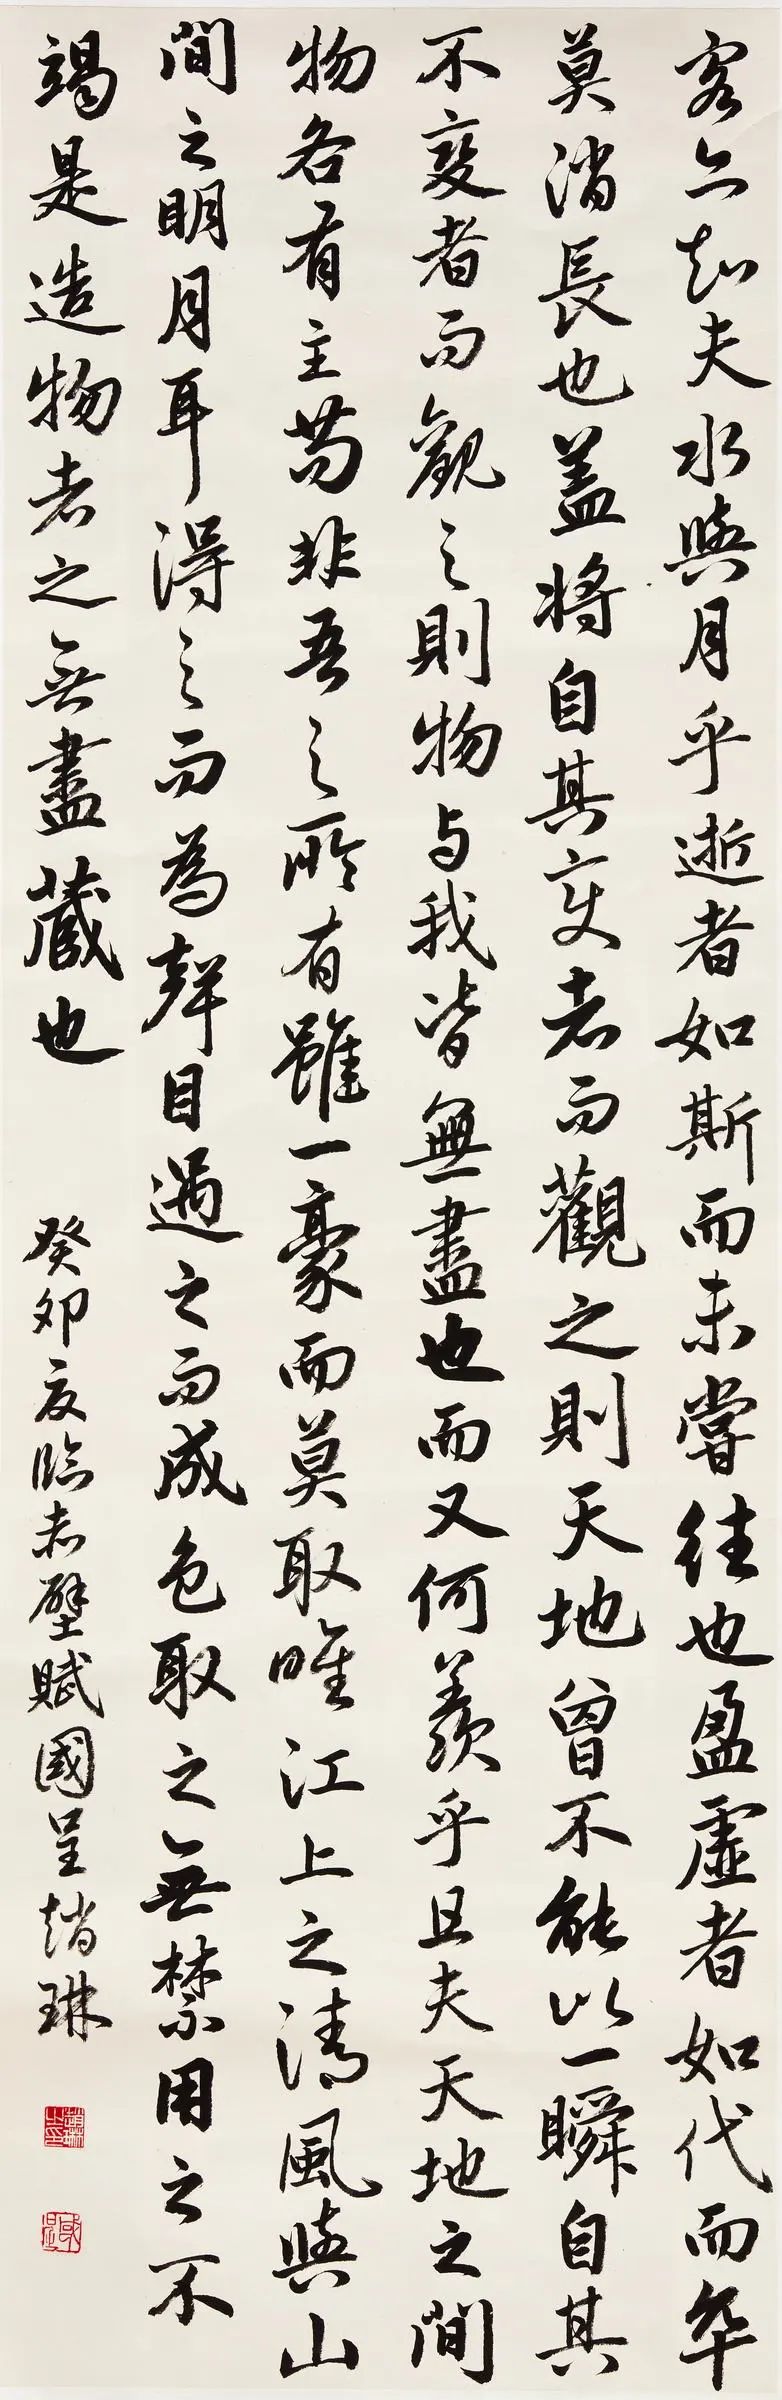 客亦知夫水與月乎逝者如斯而未嘗往也盈虛者如代而卒
莫消長也盖將自其变者而觀之則天地曾不能以一瞬自其
不變者而觀之則物与我皆無盡也而又何羨乎且夫天地之間
物各有主苟非吾之所有雖一豪而莫取唯江上之清風與山
間之明月耳得之而為聲目遇之而成色取之無禁用之不
竭是造物者之無盡藏也
癸卯夏臨赤壁賦國呈趙琳
趙琳之印